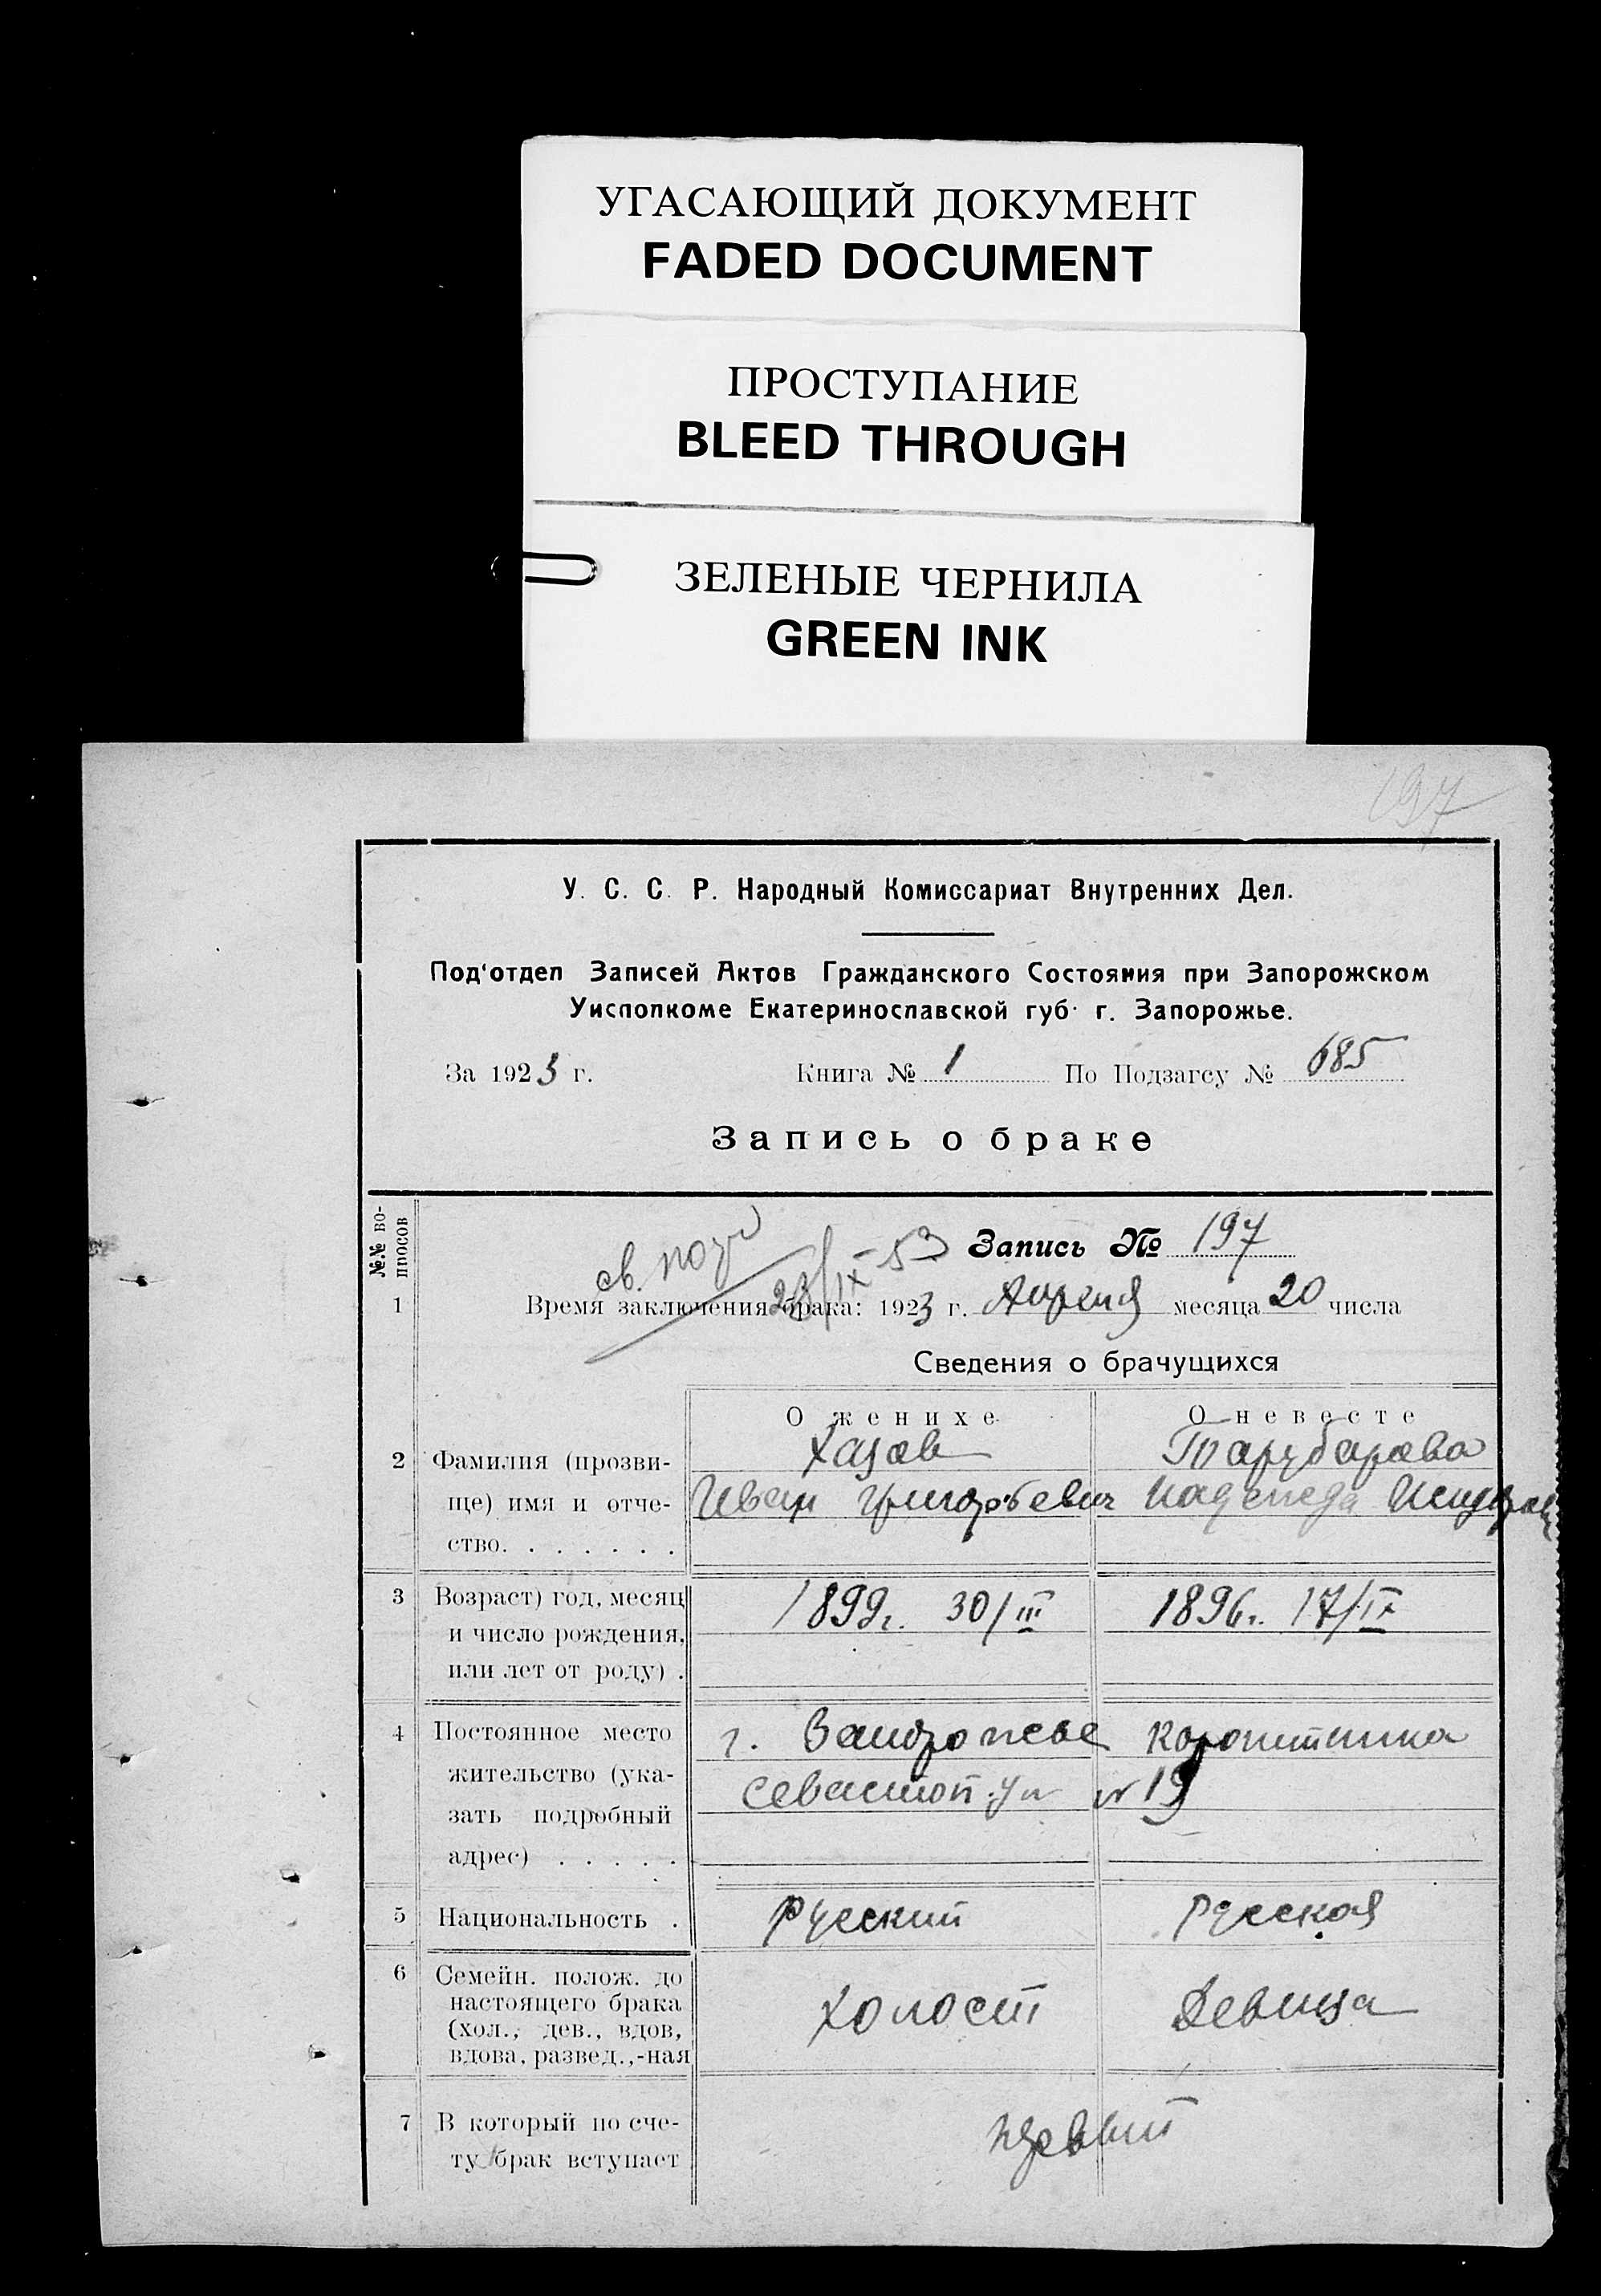 УГАСАЮЩИЙ ДОКУМЕНТ
FADED DOCUMENT
ПРОСТУПАНИЕ
BLEED THROUGH
ЗЕЛЕНЫЕ ЧЕРНИЛА
GREEN INK
197
У. С. С. Р. Народный Комиссариат Внутренних Дел.
Под‘отдел Записей Актов Гражданского Состояния при Запорожском
Уисполкоме Екатеринославской губ. г. Запорожье.
За 1923 г. Книга № 1 По Подзагсу № 685
Запись о браке
№№ во-
просов
св.
Запись № 197
1 Время заключения брака: 1923 г. Апреля месяца 20 числа
Сведения о брачущихся
О женихе О невесте
2 Фамилия (прозви- Хазов
ще) имя и отче- Иван Григорьевич Надежда
ство. . . . . . .
3 Возраст) год, месяц 1899г. 30/III 1896г. 17/IX
и число рождения,
или лет от роду) .
4 Постоянное место г. Запорожье
жительство (ука- Севастоп. ул № 19
зать подробный
адрес) . . . . .
5 Национальность . Русский Русская
6 Семейн. полож. до
настоящего брака
(хол., дев., вдов, Холост Девица
вдова, развед.,-ная
7 В который по сче- первый
ту брак вступает